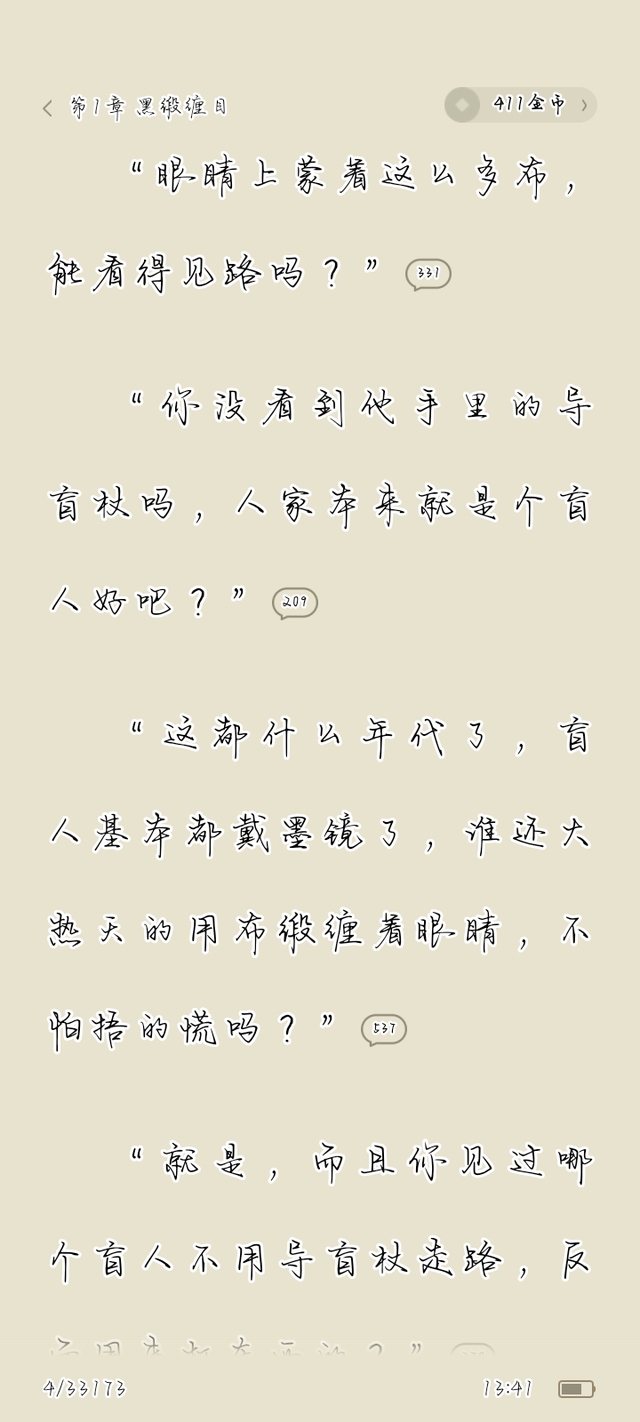 第1章 黑缎缠目
411金币
“眼睛上蒙着这么多布，
能看得见路吗？”
331
“你没看到他手里的导
盲杖吗，人家本来就是个盲
人好吧？”
209
“这都什么年代了，盲
人基本都戴墨镜了，谁还大
热天的用布缎缠着眼睛，不
怕捂的慌吗？”
537
“就是，而且你见过哪
个盲人不用导盲杖走路，反
4/33173
13:41